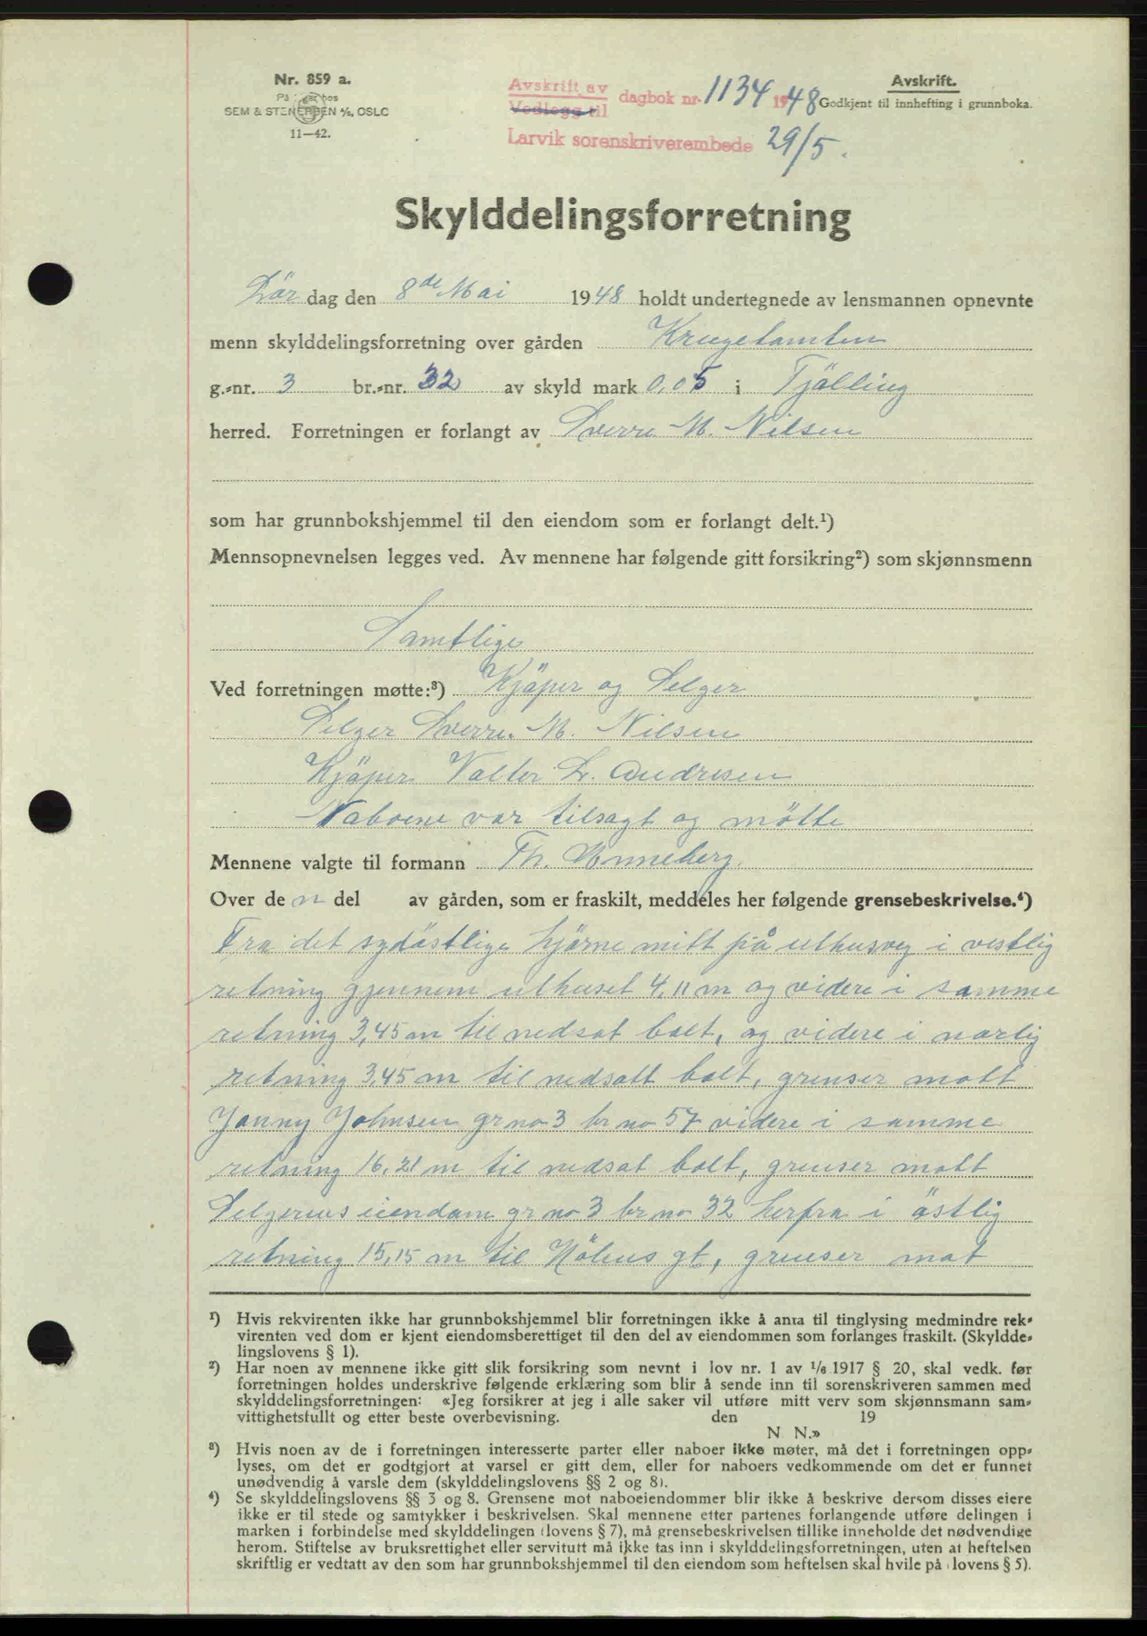 Nr. 859 a.
SEM & STENERSEN A/S, OSLO
11—42.
Avskrift av
Vedlegg til
dagbok nr. 1134 1948
Larvik sorenskriverembede 29/5.
Avskrift.
Godkjent til innhefting i grunnboka.
Skylddelingsforretning
Lör dag den 8de Mai 1948 holdt undertegnede av lensmannen opnevnte
menn skylddelingsforretning over gården
g.-nr. 3 br.-nr. 32 av skyld mark 0,05 i Tjölling
herred. Forretningen er forlangt av Sverre M. Nilsen
som har grunnbokshjemmel til den eiendom som er forlangt delt.¹)
Mennsopnevnelsen legges ved. Av mennene har følgende gitt forsikring²) som skjønnsmenn
Samtlige
Ved forretningen møtte:³) Kjöper og Selger
Selger Sverre M. Nilsen
Kjöper Valter L. Andresen
Naboene var tilsagt og mötte
Mennene valgte til formann Th.
Over de n del av gården, som er fraskilt, meddeles her følgende grensebeskrivelse.⁴)
Fra det sydöstlige hjörne mitt på uthusveg i vestlig
retning gjennem uthuset 4,11 m og videre i samme
retning 3,45 m til nedsat bolt, og videre i norlig
retning 3,45 m til nedsatt bolt, grenser mott
Jonny Johnsen gr no 3 br no 57 videre i samme
retning 16,21 m til nedsat bolt, grenser mott
Selgerens eiendom gr no 3 br no 32 herfra i östlig
retning 15,15 m til gt, grenser mot
¹) Hvis rekvirenten ikke har grunnbokshjemmel blir forretningen ikke å anta til tinglysing medmindre rek-
virenten ved dom er kjent eiendomsberettiget til den del av eiendommen som forlanges fraskilt. (Skyldde-
lingslovens § 1).
²) Har noen av mennene ikke gitt slik forsikring som nevnt i lov nr. 1 av 1/6 1917 § 20, skal vedk. før
forretningen holdes underskrive følgende erklæring som blir å sende inn til sorenskriveren sammen med
skylddelingsforretningen: «Jeg forsikrer at jeg i alle saker vil utføre mitt verv som skjønnsmann sam-
vittighetsfullt og etter beste overbevisning. den 19
N N.»
³) Hvis noen av de i forretningen interesserte parter eller naboer ikke møter, må det i forretningen opp-
lyses, om det er godtgjort at varsel er gitt dem, eller for naboers vedkommende om det er funnet
unødvendig å varsle dem (skylddelingslovens §§ 2 og 8).
⁴) Se skylddelingslovens §§ 3 og 8. Grensene mot naboeiendommer blir ikke å beskrive dersom disses eiere
ikke er til stede og samtykker i beskrivelsen. Skal mennene etter partenes forlangende utføre delingen i
marken i forbindelse med skylddelingen (lovens § 7), må grensebeskrivelsen tillike inneholde det nødvendige
herom. Stiftelse av bruksrettighet eller servitutt må ikke tas inn i skylddelingsforretningen, uten at heftelsen
skriftlig er vedtatt av den som har grunnbokshjemmel til den eiendom som heftelsen skal hvile på (lovens § 5).